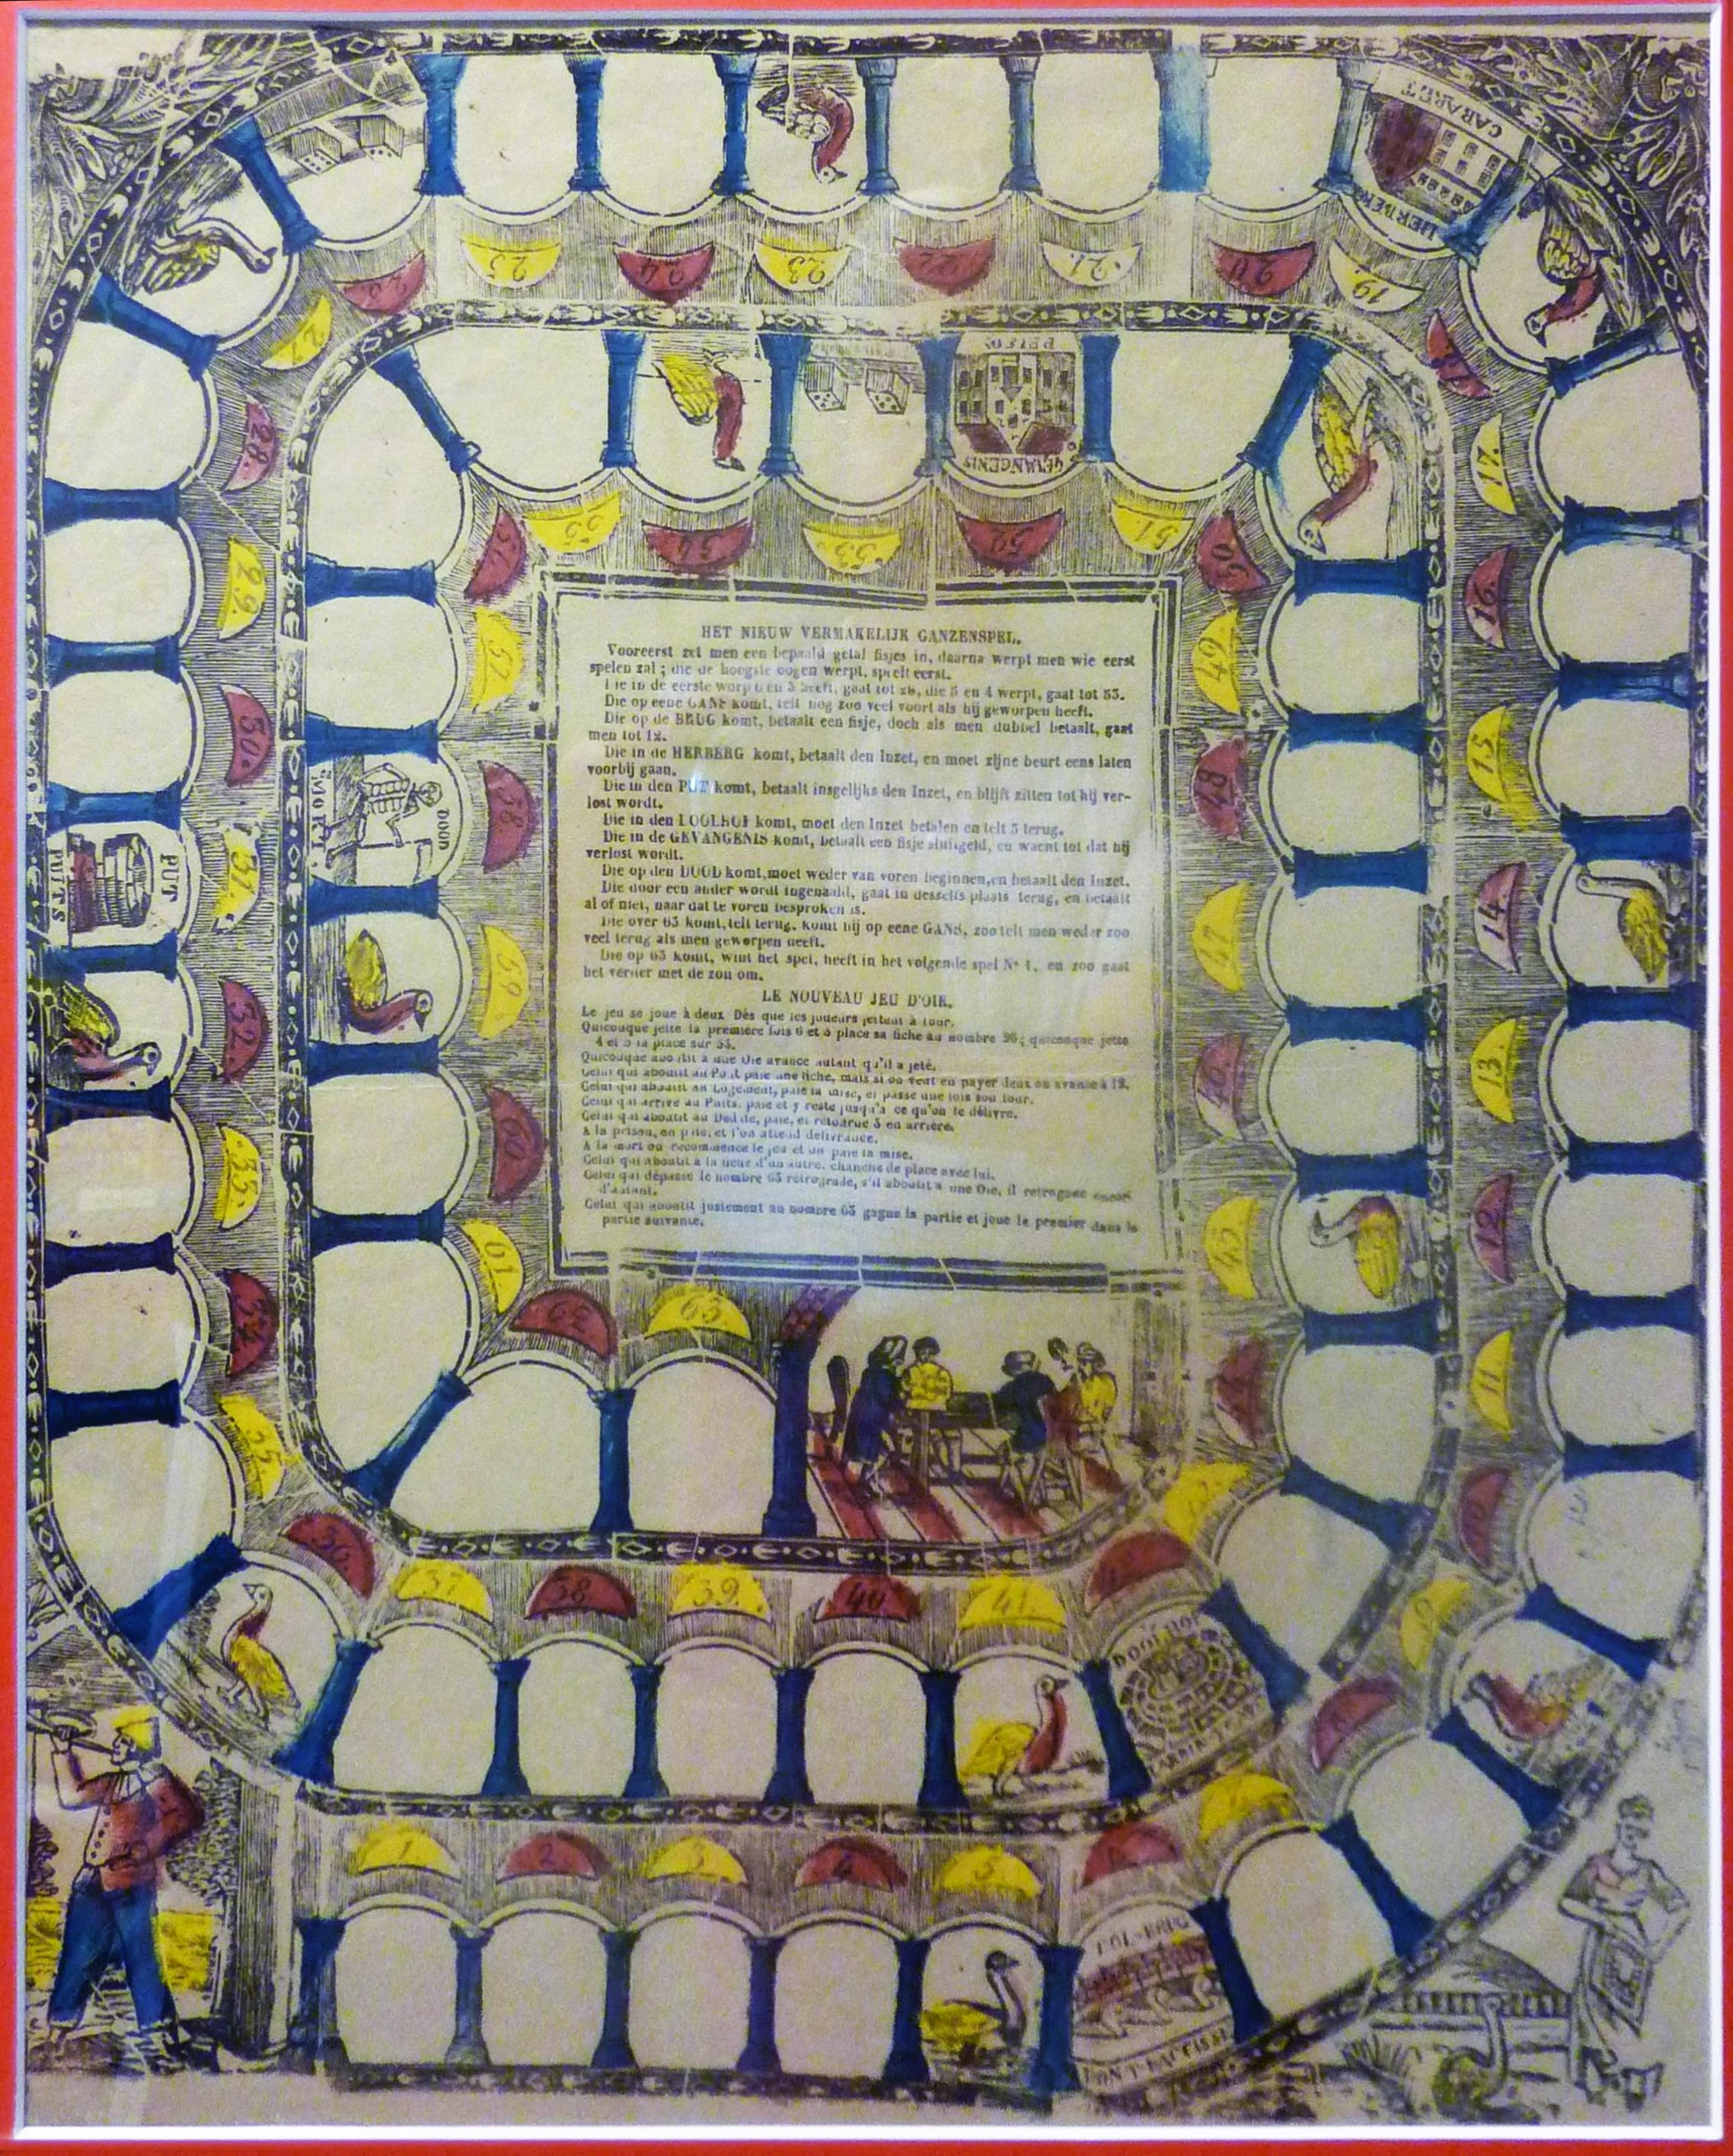 HET NIEUW VERMAKELIJK GANZENSPEL.
Vooreerst zet men een bepaald getal fisjes in, daarna werpt men wie eerst
spelen zal; die de hoogste oogen werpt, speelt eerst.
Die in de eerste worp 6 en 3 heeft, gaat tot 26, die 5 en 4 werpt, gaat tot 53.
Die op eene GANS komt, telt nog zoo veel voort als hij geworpen heeft.
Die op de BRUG komt, betaalt een fisje, doch als men dubbel betaalt, gaat
men tot 12.
Die in de HERBERG komt, betaalt den Inzet, en moet zijne beurt eens laten
voorbij gaan.
Die in den PUT komt, betaalt insgelijks den Inzet, en blijft zitten tot hij ver-
lost wordt.
Die in den DOOLHOF komt, moet den Inzet betalen en telt 3 terug.
Die in de GEVANGENIS komt, betaalt een fisje sluitgeld, en wacht tot dat hij
verlost wordt.
Die op den DOOD komt, moet weder van voren beginnen, en betaalt den Inzet.
Die door een ander wordt ingehaald, gaat in deszelfs plaats terug, en betaalt
al of niet, naar dat te voren besproken is.
Die over 63 komt, telt terug, komt hij op eene GANS, zoo telt men weder zoo
veel terug als men geworpen heeft.
Die op 63 komt, wint het spel, heeft in het volgende spel No 1, en zoo gaat
het verder met de zon om.
LE NOUVEAU JEU D'OIE.
Le jeu se joue à deux Dès que les joueurs jettent à tour.
Quiconque jette la première fois 6 et 3 place sa fiche au nombre 26; quiconque jette
4 et 5 la place sur 53.
Quiconque aboutit à une Oie avance autant qu'il a jeté.
Celui qui aboutit au Pont paie une fiche, mais si on veut en payer deux on avance à 12.
Celui qui aboutit au Logement, paie la mise, et passe une fois son tour.
Celui qui arrive au Puits, paie et y reste jusqu'à ce qu'on le délivre.
Celui qui aboutit au Dédale, paie, et retourne 3 en arrière.
A la prison, on paie, et l'on attend délivrance.
A la mort on recommence le jeu et on paie la mise.
Celui qui aboutit à la fiche d'un autre, change de place avec lui.
Celui qui dépasse le nombre 63 rétrograde, s'il aboutit à une Oie, il rétrograde encore
d'autant.
Celui qui aboutit justement au nombre 63 gagne la partie et joue le premier dans la
partie suivante.
1
2
3
4
5
6
POL-BRUG
7
8
9
10
11
12
13
14
15
16
17
18
19
HERBERG
CABARET
20
21
22
23
24
25
26
27
28
29
30
31
PUT
PUITS
32
33
34
35
36
37
38
39
40
41
42
DOOLHOF
43
44
45
46
47
48
49
50
51
52
GEVANGENIS
53
54
55
56
57
58
DOOD
MORT
59
60
61
62
63